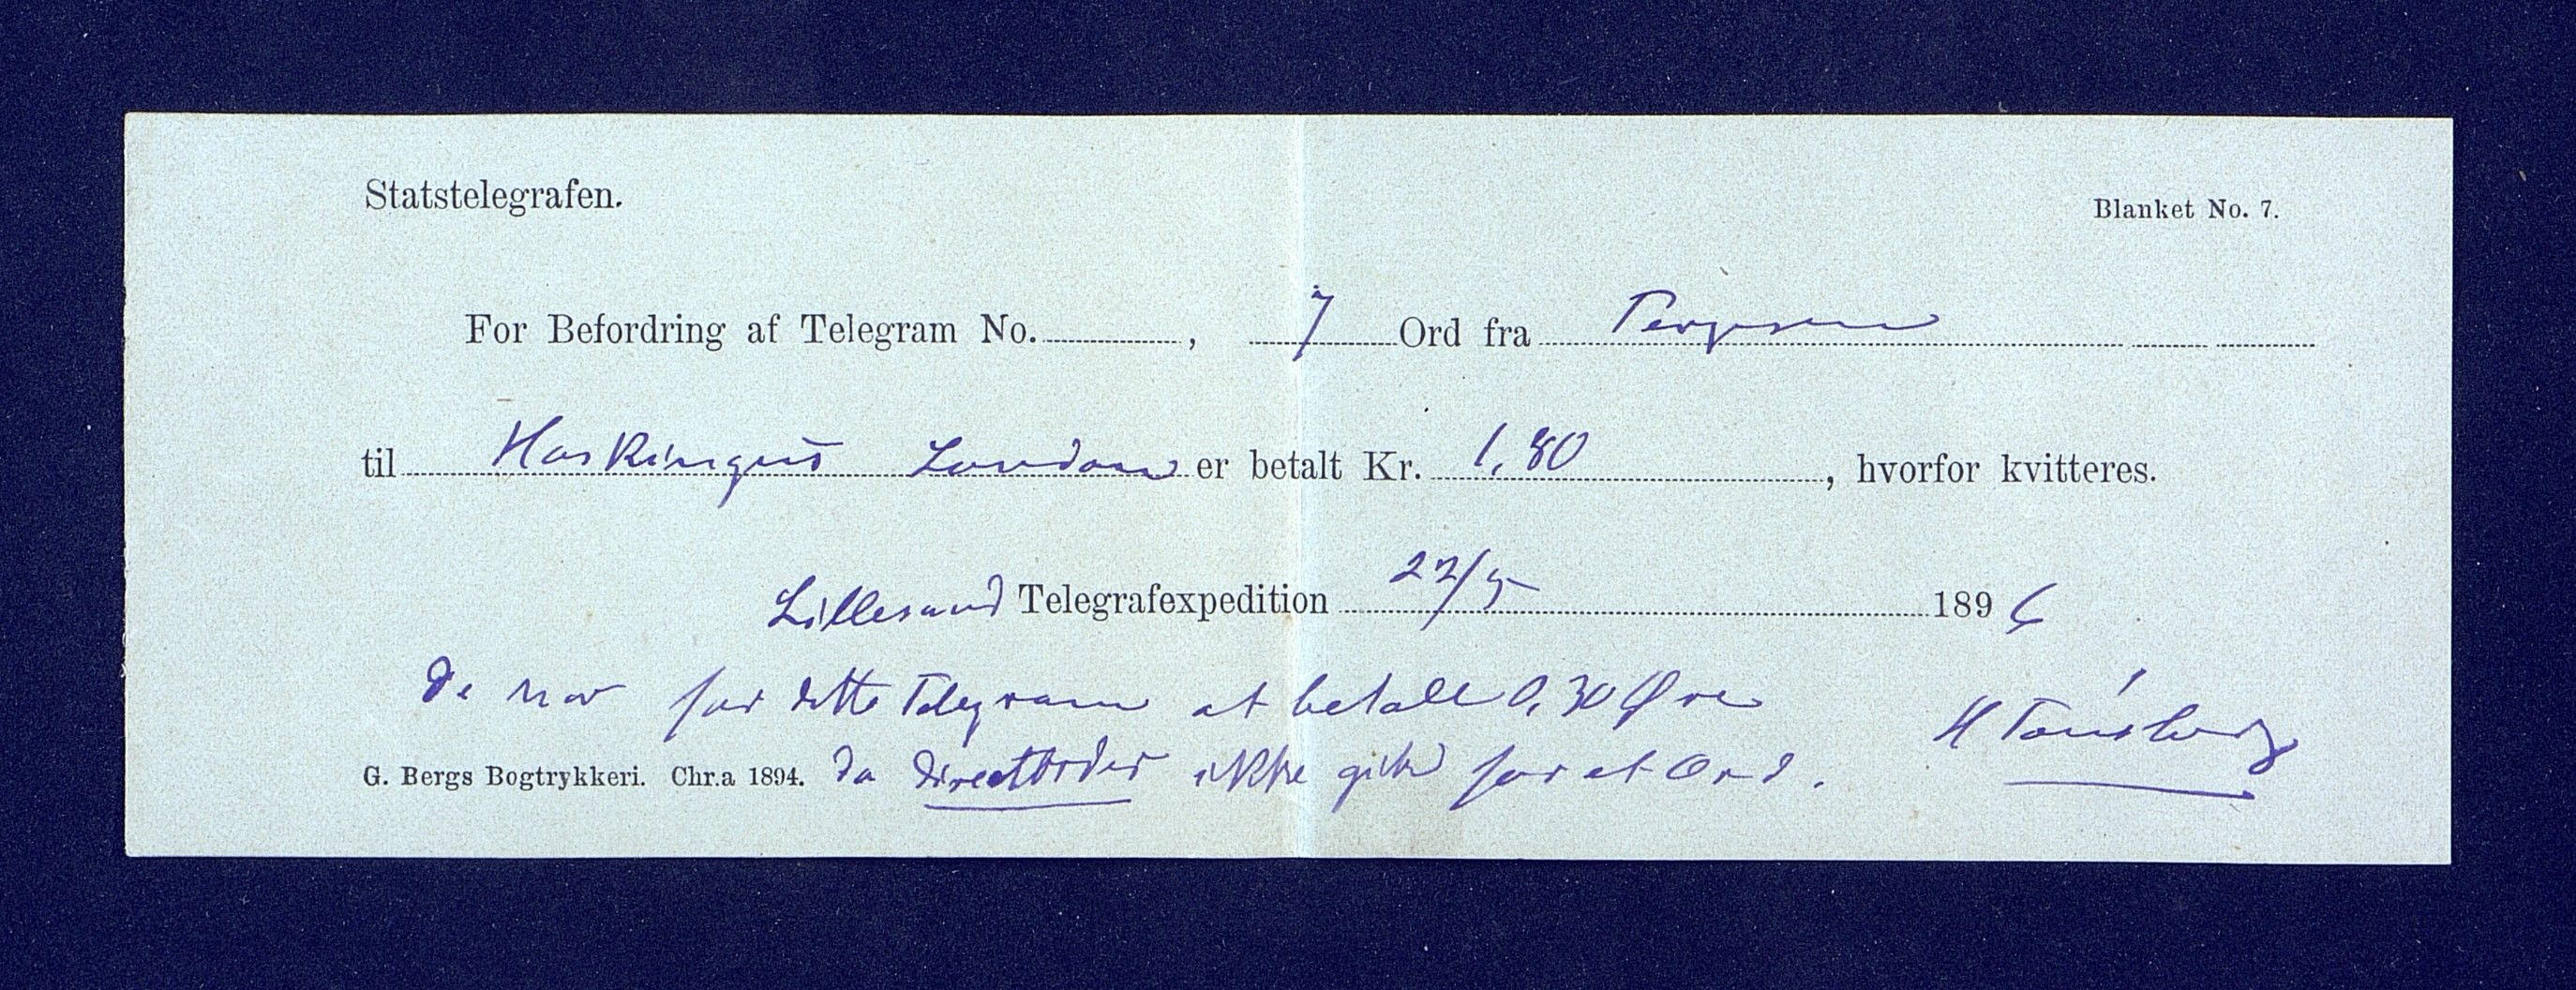 Statstelegrafen.
Blanket No. 7.
For Befordring af Telegram No. , 7 Ord fra Terjesen
til London er betalt Kr. 1,80 , hvorfor kvitteres.
Lillesand Telegrafexpedition 22/5 1896
De har for dette Telegram at betale 0,30 Øre
da directorder ikke for et Ord.
H Tønsberg
G. Bergs Bogtrykkeri. Chr.a 1894.